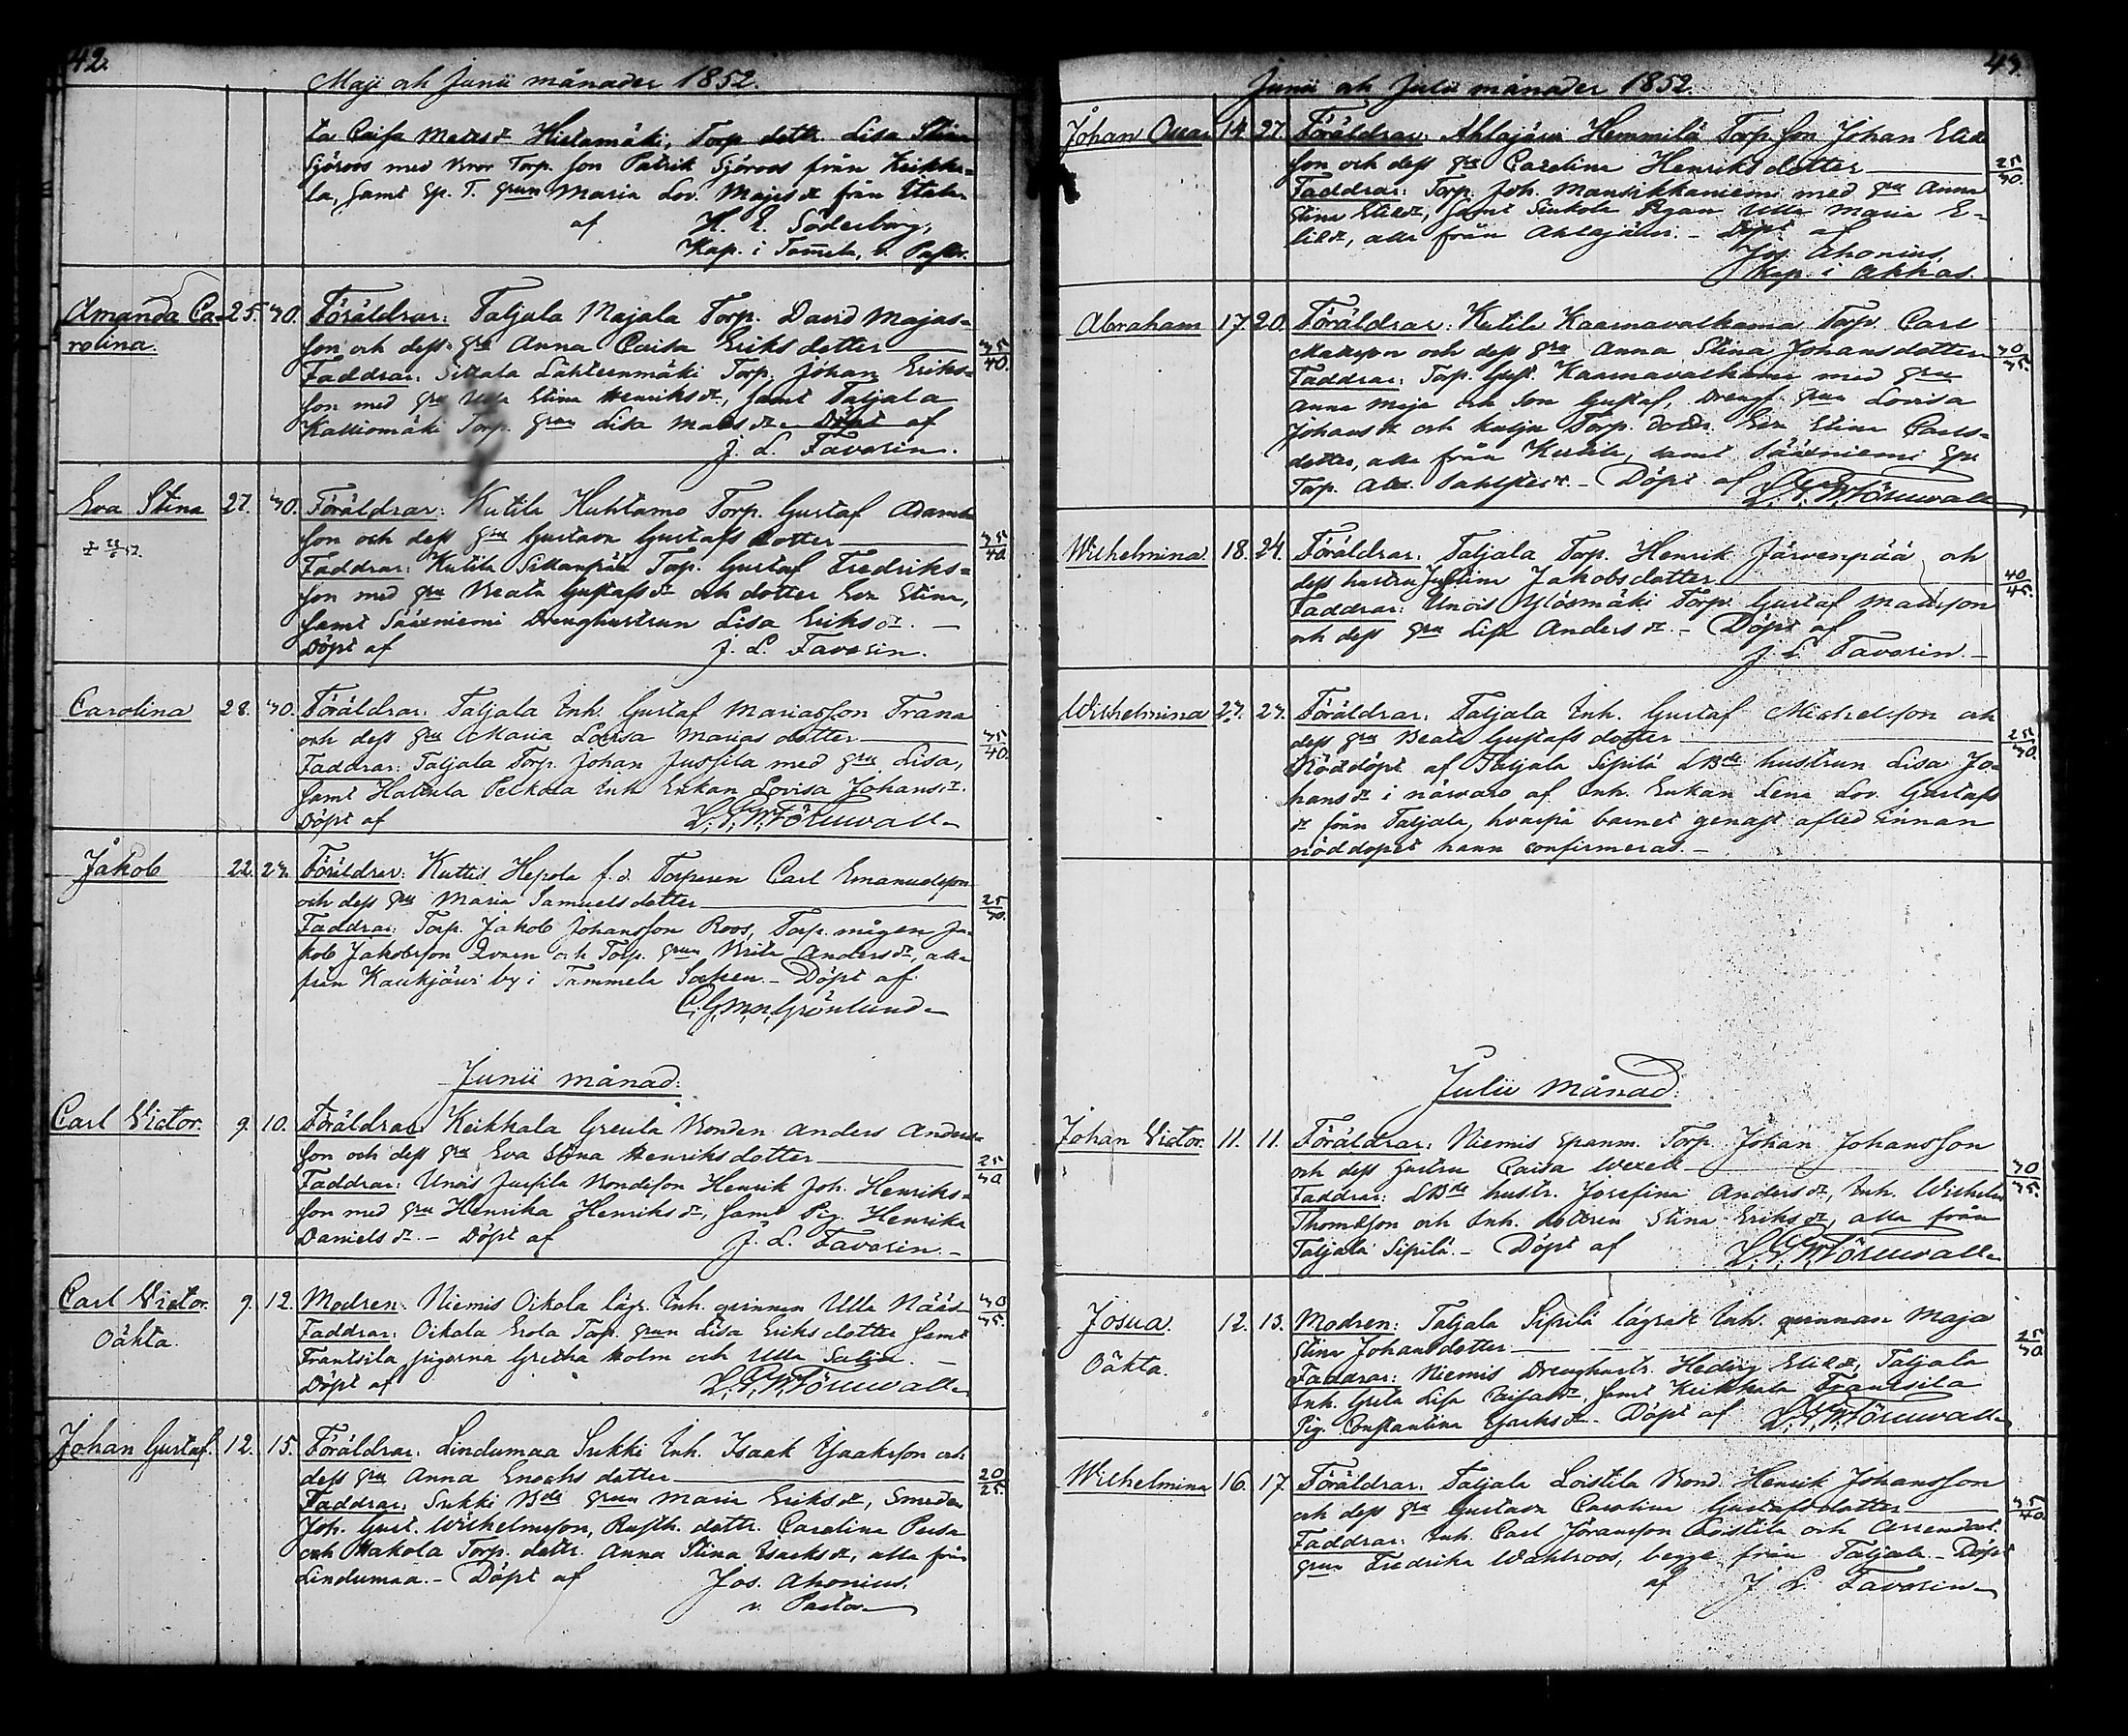 42.
Maji och Junii månader 1852.
ta Caisa Matts dr Hietamäki, Torp. dottr. Lisa Stina
Sjöroos med bror Torp. son Patrik Sjöroos från Keikka-
la, samt Sp. T. hrun Maria Lov. Majas dr från
af H. E. Söderborg,
Kap. i Tam̄ela, v. Pastor.
Amanda Ca- 25. 30. Föräldrar: Taljala Majala Torp. David Majas-
rolina. son och dess hru Anna Caisa Eriks dotter 35/40.
Faddrar: Lahteenmäki Torp. Johan Eriks-
son med hru Ulla Stina Henriks dr, samt Taljala
Kalliomäki Torp. hrun Lisa Matts dr. Döpt af
J. L. Favorin.
Eva Stina 27. 30. Föräldrar: Kutila Huhtamo Torp. Gustaf Adams-
son och dess hru Gustava Gustafs dotter 35/40
Faddrar: Kutila Torp. Gustaf Fredriks-
son med hru Beata Gustafs dr och dotter Eva Stina,
samt Sääxniemi Dränghustrun Lisa Eriks dr.
Döpt af J. L. Favorin.
Carolina 28. 30. Föräldrar: Taljala Inh. Gustaf Mariasson Trana
och dess hru Maria Lovisa Marias dotter 35/40.
Faddrar: Taljala Torp. Johan Jussila med hru Lisa,
samt Hattula Pelkola Inh. Enkan Lovisa Johans dr.
Döpt af L. G. W. Törnwall
Jakob 22. 23. Föräldrar: Kuttis Hepola f.d. Torparen Carl Emanuelsson
och dess hru Maria Samuels dotter 25/30.
Faddrar: Torp. Jakob Johansson Roos, Torp. mågen Ja-
kob Jakobsson och Torp. hrun Brita Anders dr, alla
från Kaukjärvi by i Tammela Socken. Döpt af
C. G. Grönlund
Junii månad:
Carl Victor. 9. 10. Föräldrar: Keikkala Greula Bonden Anders Anders-
son och dess hru Eva Stina Henriks dotter 25/30
Faddrar: Unois Jussila Bondeson Henrik Joh. Henriks-
son med hru Henrika Henriks dr, samt Pig. Henrika
Daniels dr. - Döpt af J. L. Favorin.
Carl Victor. 9. 12. Modren: Niemis Oikola lägr. Inh. qvinnan Ulla Nääs 30/35.
Oäkta. Faddrar: Oikala Erola Torp. hrun Lisa Eriks dotter samt
Frantsila pigorna Gretha Holm och Ulla Salin.
Döpt af L. G. W. Törnwall
Johan Gustaf. 12. 15. Föräldrar: Lindumaa Sukki Inh. Isaak Isaaksson och
dess hru Anna Enochs dotter 20/25
Faddrar: Sukki Bde hrun Maria Eriks dr, Smeden
Joh. Gust. Wilhelmsson, Rusth. dottr. Carolina Persa
och Hakola Torp. dottr. Anna Stina Isacks dr, alla från
Lindumaa. - Döpt af Jos. Ahonius,
v. Pastor
43.
Junii och Julii månader 1852.
Johan Oscar 14. 27. Föräldrar: Ahlajärvi Hemmilä Torp. son Johan Elias-
son och dess hru Carolina Henriks dotter 25/30.
Faddrar: Torp. Joh. Mansikkaniemi med hru Anna
Stina Elias dr, samt Pigan Ulla Maria E-
lias dr, alla från Ahlajärvi. - Döpt af
Jos. Ahonius,
Kap. i Akkas.
Abraham 17. 20. Föräldrar: Kutila Kaarnavalkama Torp. Carl
Mattsson och dess hru Anna Stina Johansdotter 30/35.
Faddrar: Torp. Gust. Kaarnavalkama med hru
Anna Maja och son Gustaf, Drengs hrun Lovisa
Johans dr och Torp. dottr. Eva Stina Carls-
dotter, alla från Kutila, samt Sääxniemi
Torp. Döpt af L. G. W. Törnwall
Wilhelmina 18. 24. Föräldrar: Taljala Torp. Henrik Järvenpää och
dess hustru Justina Jakobsdotter 40/45.
Faddrar: Unois Ylösmäki Torp. Gustaf Mattsson
och dess hru Lisa Anders dr. - Döpt af
J. L. Favorin.
Wilhelmina 27. 27. Föräldrar: Taljala Inh. Gustaf Michelsson och
dess hru Beata Gustafs dotter 25/30.
Nöddöpt af Taljala Sipilä hustrun Lisa Jo-
hans dr i närvaro af Inh. Enkan Lena Lov. Gustafs
dr från Taljala, hvarpå barnet genast afled innan
nöddopet hann confirmeras. -
Julii Månad:
Johan Victor. 11. 11. Föräldrar: Niemis spanm. Torp. Johan Johansson
och dess hustru Caisa Wexell 30/35.
Faddrar: hustr. Josefina Anders dr, Inh. Wilhelm
Thomasson och Inh. dottren Stina Eriks dr, alla från
Taljala Sipilä. - Döpt af L. G. W. Törnwall
Josua. 12. 13. Modren: Taljala Sipilä lägrade Inh. qvinnan Maja
Oäkta. Stina Johansdotter 25/30
Faddrar: Niemis Dränghustr. Hedvig Elias dr, Taljala
Inh. Greta Lisa samt Keikkala Frantsila
Pig. Constantina Döpt af L. G. W. Törnwall
Wilhelmina 16. 17. Föräldrar: Taljala Loistila Bond. Henrik Johansson
och dess hru Gustava Carolina Gustafs dotter 35/40.
Faddrar: Inh. Carl Göransson Loistila och Arrendat.
hrun Fredrika Wahlroos, begge från Taljala. - Döpt
af J. L. Favorin